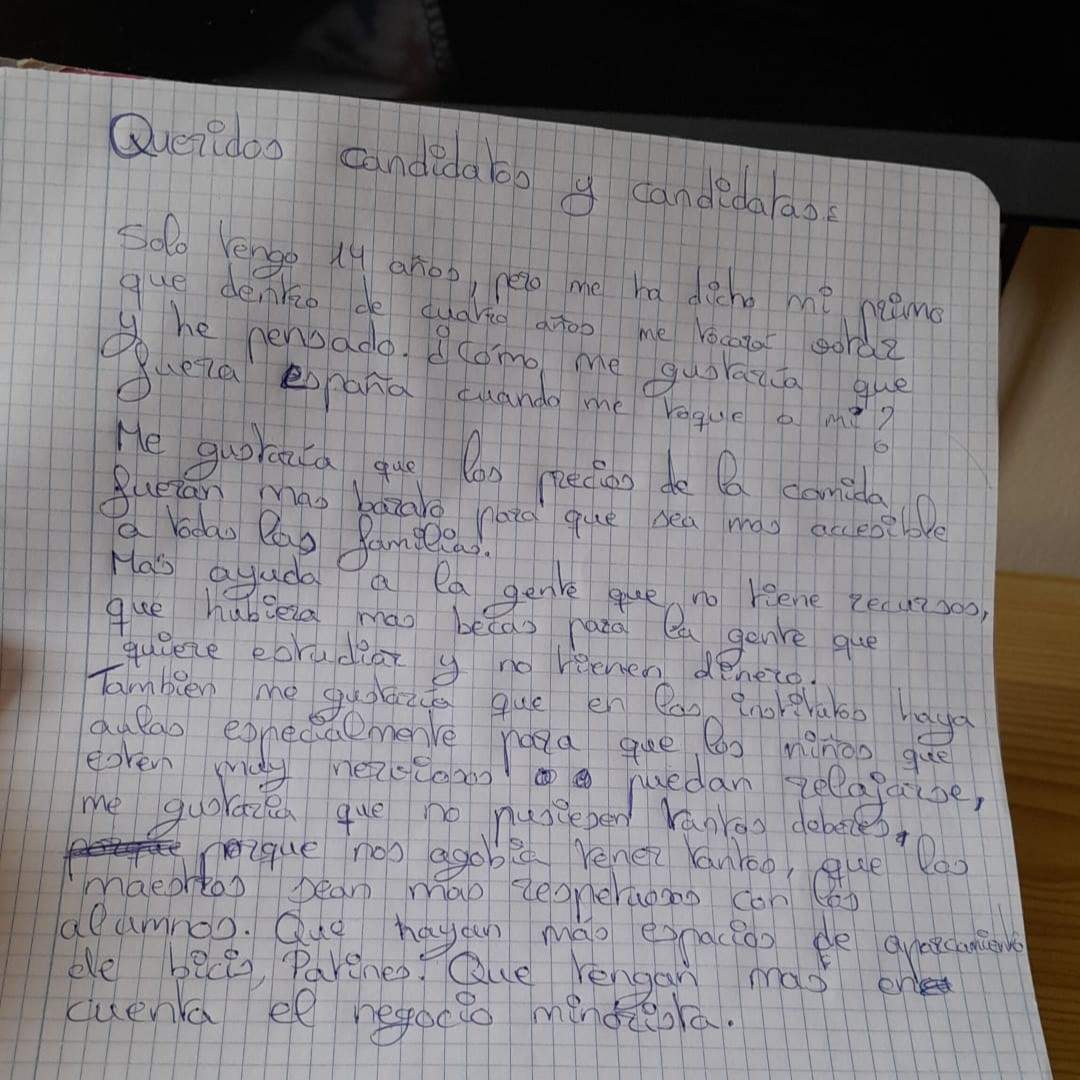 Queridos candidatos y candidatas:
Solo tengo 14 años, pero me ha dicho mi primo
que dentro de cuatro años me tocará votar
y he pensado. ¿Cómo me gustaría que
fuera españa cuando me toque a mi?
Me gustaría que los precios de la comida
fueran mas barato para que sea mas accesible
a todas las familias.
Mas ayuda a la gente que no tiene recursos,
que hubiera mas becas para la gente que
quiere estudiar y no tienen dinero.
Tambien me gustaría que en los institutos haya
aulas especialmente para que los niños que
esten muy nerviosos puedan relajarse,
me gustaria que no pusiesen tantos deberes,
porque nos agobia tener tantos, que los
maestros sean mas respetuosos con los
alumnos. Que hayan más espacios de aparcamiento
de bicis, Patines. Que tengan mas en
cuenta el negocio minorista.